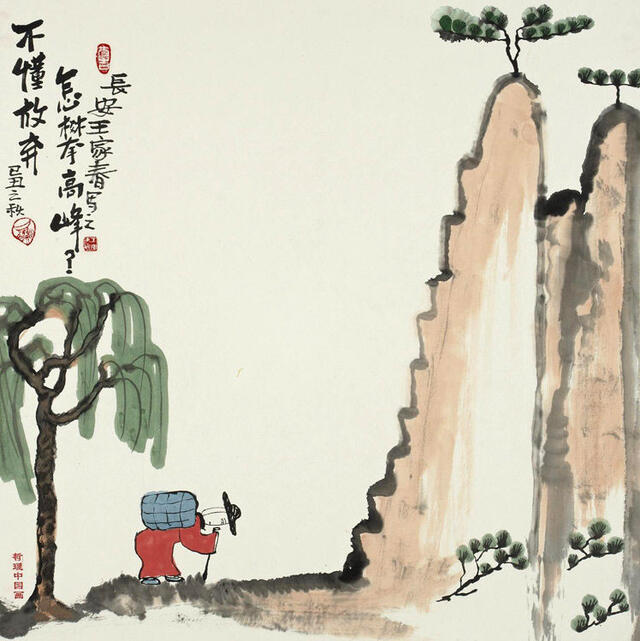 不懂放弃
怎攀高峰?
長安王家春写之
己丑之秋
哲理中国画